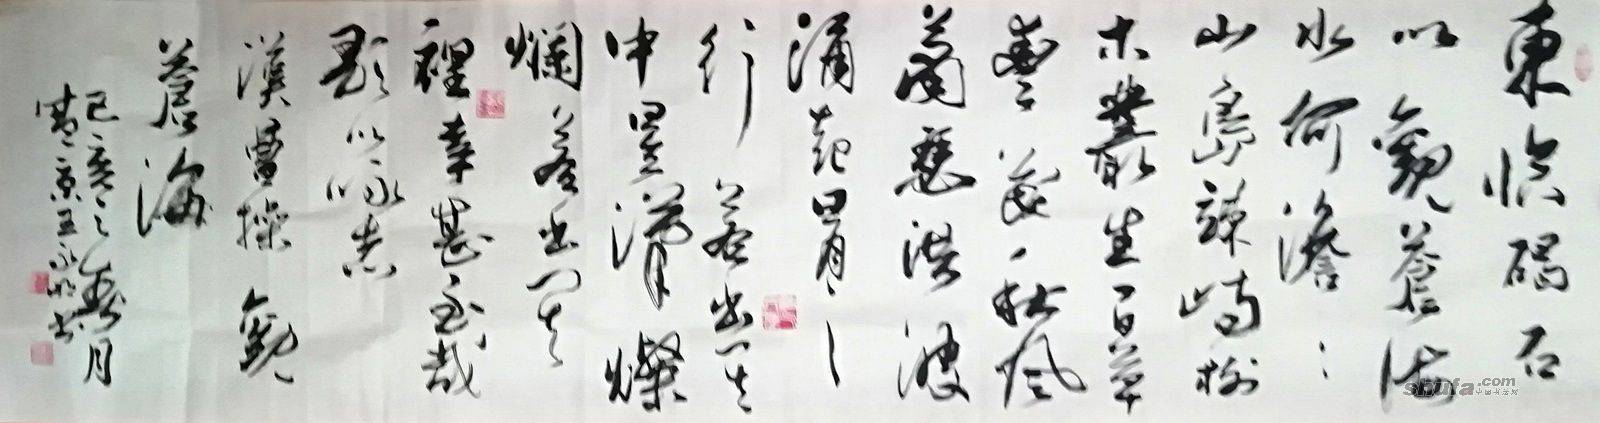 東臨碣石
以觀蒼海
水何澹：
山島竦峙樹
木叢生百草
豐茂、秋風
蕭瑟洪波
涌起日月、之
行若出其
中星漢燦
爛若出其
裡幸甚至哉
歌以詠志
漢曹操觀
蒼海
己亥之春月
王永明书
shufa.com
中国书法网